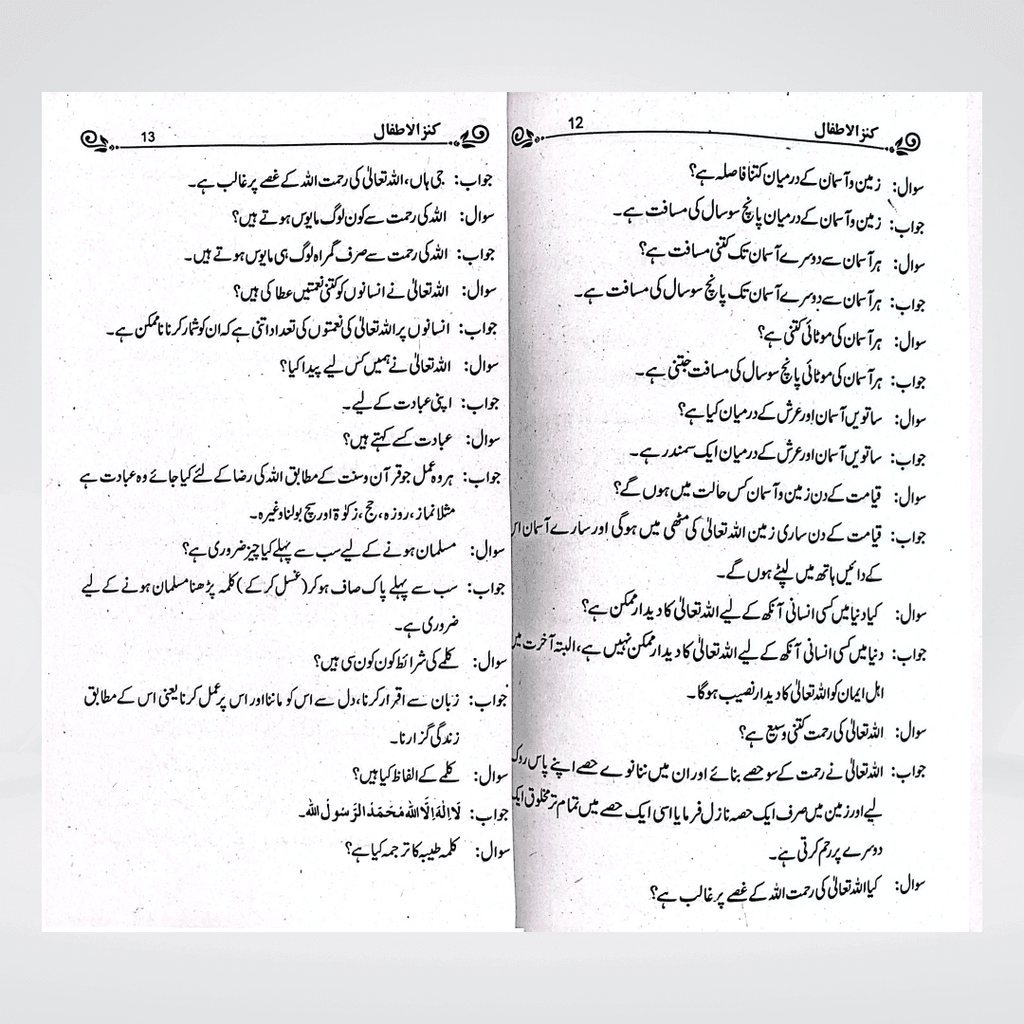 کنز الاطفال 12
سوال: زمین و آسمان کے درمیان کتنا فاصلہ ہے؟
جواب: زمین و آسمان کے درمیان پانچ سو سال کی مسافت ہے۔
سوال: ہر آسمان سے دوسرے آسمان تک کتنی مسافت ہے؟
جواب: ہر آسمان سے دوسرے آسمان تک پانچ سو سال کی مسافت ہے۔
سوال: ہر آسمان کی موٹائی کتنی ہے؟
جواب: ہر آسمان کی موٹائی پانچ سو سال کی مسافت جتنی ہے۔
سوال: ساتویں آسمان اور عرش کے درمیان کیا ہے؟
جواب: ساتویں آسمان اور عرش کے درمیان ایک سمندر ہے۔
سوال: قیامت کے دن زمین و آسمان کس حالت میں ہوں گے؟
جواب: قیامت کے دن ساری زمین اللہ تعالیٰ کی مٹھی میں ہوگی اور سارے آسمان اس
کے دائیں ہاتھ میں لپٹے ہوں گے۔
سوال: کیا دنیا میں کسی انسانی آنکھ کے لیے اللہ تعالیٰ کا دیدار ممکن ہے؟
جواب: دنیا میں کسی انسانی آنکھ کے لیے اللہ تعالیٰ کا دیدار ممکن نہیں ہے، البتہ آخرت میں
اہل ایمان کو اللہ تعالیٰ کا دیدار نصیب ہوگا۔
سوال: اللہ تعالیٰ کی رحمت کتنی وسیع ہے؟
جواب: اللہ تعالیٰ نے رحمت کے سو حصے بنائے اور ان میں ننانوے حصے اپنے پاس روک
لیے اور زمین میں صرف ایک حصہ نازل فرمایا اسی ایک حصے میں تمام تر مخلوق ایک
دوسرے پر رحم کرتی ہے۔
سوال: کیا اللہ تعالیٰ کی رحمت اللہ کے غصے پر غالب ہے؟
کنز الاطفال 13
جواب: جی ہاں، اللہ تعالیٰ کی رحمت اللہ کے غصے پر غالب ہے۔
سوال: اللہ کی رحمت سے کون لوگ مایوس ہوتے ہیں؟
جواب: اللہ کی رحمت سے صرف گمراہ لوگ ہی مایوس ہوتے ہیں۔
سوال: اللہ تعالیٰ نے انسانوں کو کتنی نعمتیں عطا کی ہیں؟
جواب: انسانوں پر اللہ تعالیٰ کی نعمتوں کی تعداد اتنی ہے کہ ان کو شمار کرنا ناممکن ہے۔
سوال: اللہ تعالیٰ نے ہمیں کس لیے پیدا کیا؟
جواب: اپنی عبادت کے لیے۔
سوال: عبادت کسے کہتے ہیں؟
جواب: ہر وہ عمل جو قرآن و سنت کے مطابق اللہ کی رضا کے لئے کیا جائے وہ عبادت ہے
مثلا نماز، روزہ، حج، زکوٰۃ اور سچ بولنا وغیرہ۔
سوال: مسلمان ہونے کے لیے سب سے پہلے کیا چیز ضروری ہے؟
جواب: سب سے پہلے پاک صاف ہو کر (غسل کر کے) کلمہ پڑھنا مسلمان ہونے کے لیے
ضروری ہے۔
سوال: کلمے کی شرائط کون کون سی ہیں؟
جواب: زبان سے اقرار کرنا، دل سے اس کو ماننا اور اس پر عمل کرنا یعنی اس کے مطابق
زندگی گزارنا۔
سوال: کلمے کے الفاظ کیا ہیں؟
جواب: لَا اِلٰهَ اِلَّا اللهُ مُحَمَّدُ الرَّسُولُ الله۔
سوال: کلمہ طیبہ کا ترجمہ کیا ہے؟